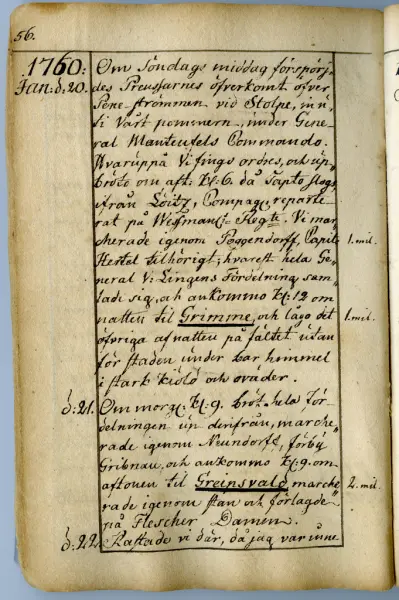 56.
1760: Om Söndags middag förspörj-
Jan: d: 20. des Preussarnes öfverkomt öfver
Pene strömmen vid Stolpe, in
i Vårt pommern, under Gene-
ral Manteufels Commando.
Hvaruppå Vi fingo ordres, och up-
bröto om aft: kl: 6. då Tapto slogs
ifrån Löitz, Compag: reparte-
rat på Wissman Regte. Vi mar-
cherade igenom Poggendorff, Capit: 1. mil.
Hertel tilhörigt, hvarest hela Ge-
neral V: Lingens Fördelning sam-
lade sig, och ankommo kl: 12 om
natten til Grimme, och lågo det 1. mil.
öfriga af natten på fältet utan
för staden under bar himmel
i stark kiöld och oväder.
d: 21. Om morg: kl: 9. bröt hela för-
delningen up derifrån, marche-
rade igenom Neundorff, förbij
Gribnau, och ankommo kl: 9. om
aftonen til Greipsvald, marche- 2. mil.
rade igenom stan och förlagde
på Flescher Damen.
d: 22. Rastade vi där, då jag var inne